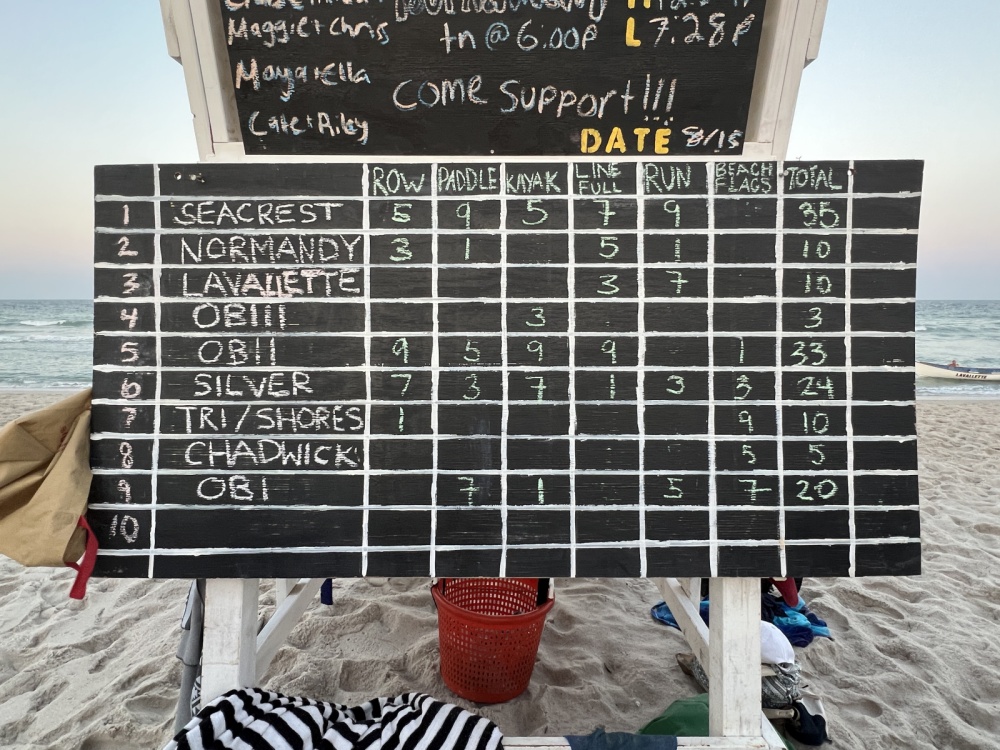 Maggie + Chris
tn @ 6:00P
L 7:28P
Come Support!!!
Cate + Riley
DATE 8/15
ROW PADDLE KAYAK LINE FULL RUN BEACH FLAGS TOTAL
1 SEACREST 5 9 5 7 9 35
2 NORMANDY 3 1 5 1 10
3 LAVALLETTE 3 7 10
4 OBIII 3 3
5 OBII 9 5 9 9 1 33
6 SILVER 7 3 7 1 3 3 24
7 TRI/SHORES 1 9 10
8 CHADWICK 5 5
9 OBI 7 1 5 7 20
10
LAVALLETTE